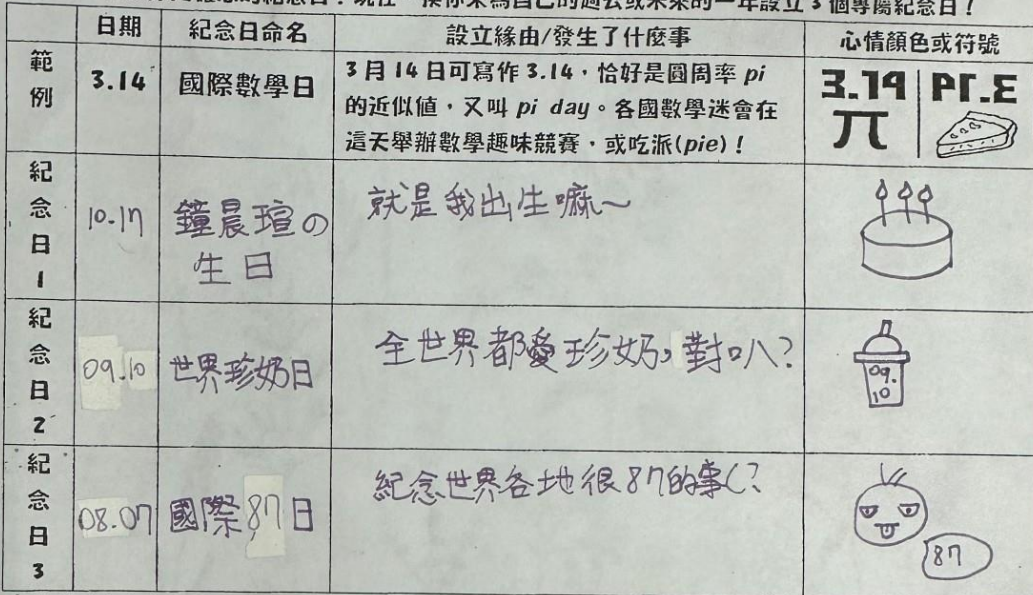 的紀念日！現在，換你來為自己的過去或未來的一年設立3個專屬紀念日！
日期 紀念日命名 設立緣由/發生了什麼事 心情顏色或符號
範例 3.14 國際數學日 3月14日可寫作3.14，恰好是圓周率pi
的近似值，又叫pi day。各國數學迷會在
這天舉辦數學趣味競賽，或吃派(pie)！
3.14 PI.E
π
紀念日1 10.17 鐘晨瑄の
生日
就是我出生嘛~
紀念日2 09.10 世界珍奶日 全世界都愛珍奶，對叭？
09.
10
紀念日3 08.07 國際87日 紀念世界各地很87的事(？
87